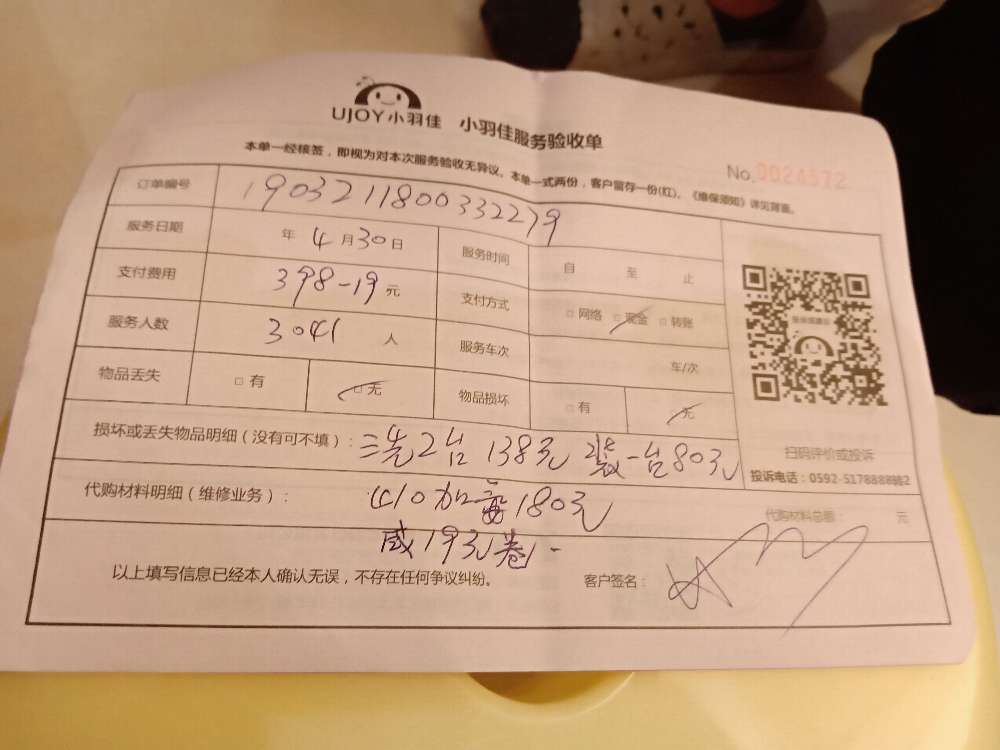 UJOY小羽佳 小羽佳服务验收单
本单一经核签，即视为对本次服务验收无异议。本单一式两份，客户留存一份(红)。《维保须知》详见背面。
No.0024572
订单编号 1903211800332279
服务日期 年 4月30日 服务时间 自 至 止
支付费用 398-19元 支付方式 □网络 □现金 □转账
服务人数 3041 人 服务车次 车/次
物品丢失 □有 □无 物品损坏 □有 □无
扫码评价或投诉
投诉电话：0592-5178888转2
损坏或丢失物品明细（没有可不填）： 洗2台138元 装一台80元
代购材料明细（维修业务）： 加 180元 代购材料总额： 元
减19元 卷1-
以上填写信息已经本人确认无误，不存在任何争议纠纷。 客户签名：